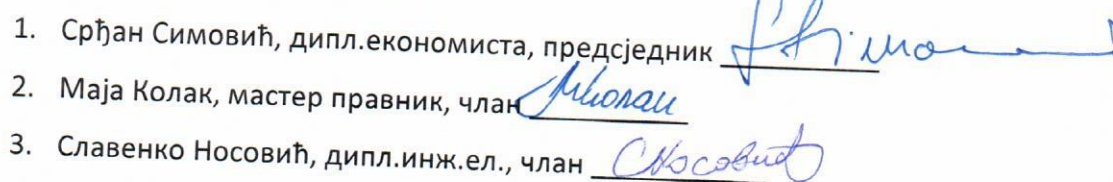 1. Срђан Симовић, дипл.економиста, предсједник
2. Маја Колак, мастер правник, члан МКолак
3. Славенко Носовић, дипл.инж.ел., члан СНосовић